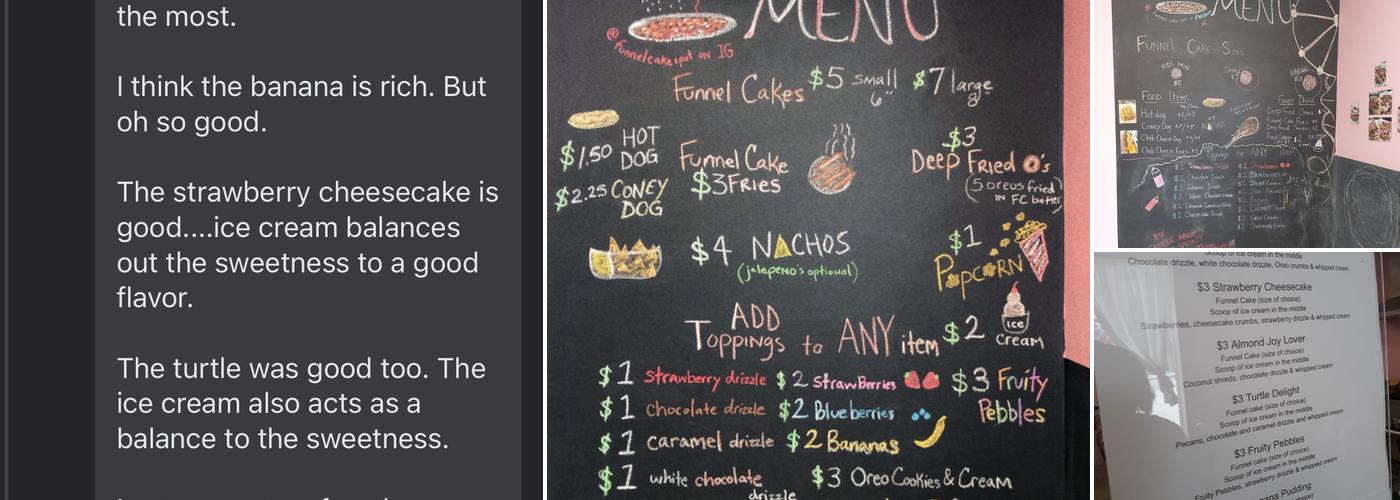 the most.
I think the banana is rich. But
oh so good.
The strawberry cheesecake is
good....ice cream balances
out the sweetness to a good
flavor.
The turtle was good too. The
ice cream also acts as a
balance to the sweetness.
MENU
@funnelcakespot on IG
Funnel Cakes $5 small 6" $7 large 8"
$1.50 HOT DOG
$2.25 CONEY DOG
Funnel Cake
$3 FRIES
$3
Deep Fried O's
(5 oreos fried
IN FC batter)
$4 NACHOS
(jalapeno's optional)
$1
POPCORN
ADD
Toppings to ANY item
$2 ice cream
$1 Strawberry drizzle
$1 chocolate drizzle
$1 caramel drizzle
$1 white chocolate
drizzle
$2 StrawBerries
$2 Blueberries
$2 Bananas
$3 Oreo Cookies & Cream
$3 Fruity
Pebbles
MENU
FUNNEL CAKE SIZES
KIDS MINI
$5
FOOD ITEMS
Hot dog
Coney Dog
Chili Cheese Dog
Chili Cheese Fries
NACHOS
Finger Items
Deep Fried Oreos
Funnel Cake Fries
Toppings to ANY item
$1 Strawberry Drizzle
$1 Chocolate Drizzle
$1 Caramel Drizzle
$1 White Chocolate Drizzle
$2 Strawberries
$2 Blueberries
Scoop of ice cream in the middle
Chocolate drizzle, white chocolate drizzle, Oreo crumbs & whipped cream
$3 Strawberry Cheesecake
Funnel Cake (size of choice)
Scoop of ice cream in the middle
Strawberries, cheesecake crumbs, strawberry drizzle & whipped cream
$3 Almond Joy Lover
Funnel Cake (size of choice)
Scoop of ice cream in the middle
Coconut shreds, chocolate drizzle & whipped cream
$3 Turtle Delight
Funnel cake (size of choice)
Scoop of ice cream in the middle
Pecans, chocolate and caramel drizzle and whipped cream
$3 Fruity Pebbles
Funnel cake (size of choice)
Scoop of ice cream in the middle
Fruity Pebbles, strawberry drizzle & whipped cream
Pudding